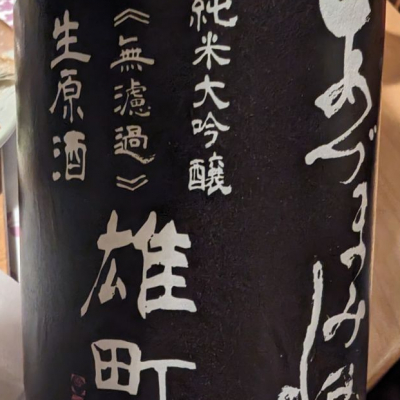 あづまみね
純米大吟醸
《無濾過》
生原酒
雄町